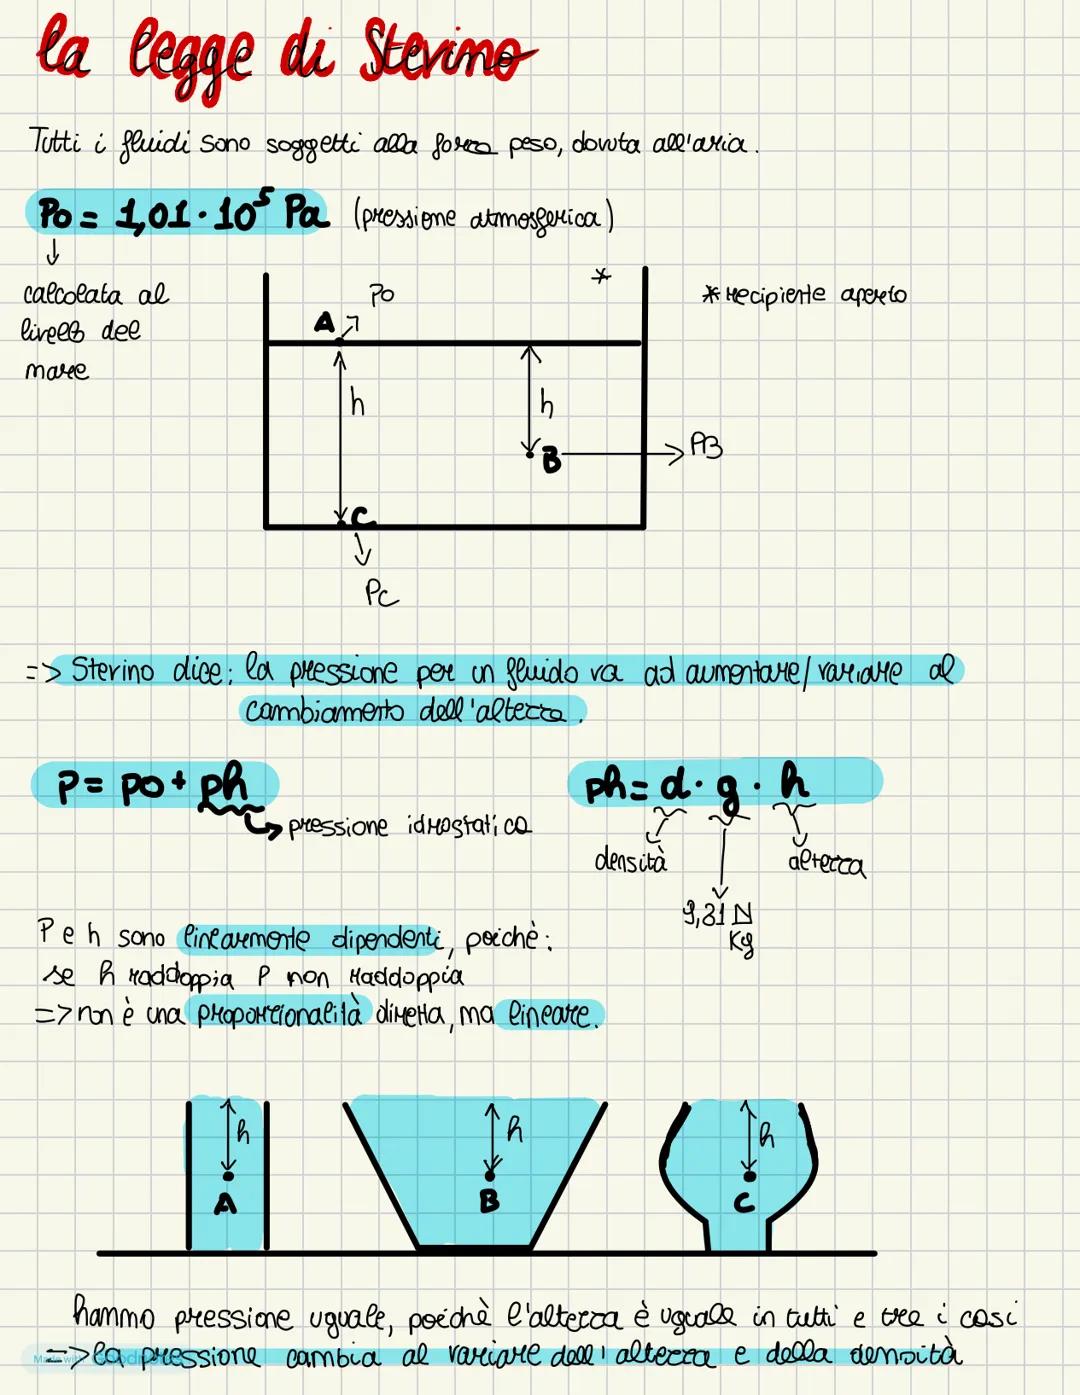 la legge di Stevino
Tutti i fluidi sono soggetti alla forza peso, dovuta all'aria.
Po = 1,01 · 10⁵ Pa (pressione atmosferica)
↓
calcolata al
livello del
mare
Po
*
* recipiente aperto
A
h
h
B
PB
C
Pc
=> Stevino dice: la pressione per un fluido va ad aumentare/variare al
cambiamento dell'altezza.
P = po + ph
ph = d · g · h
pressione idrostatica
densità
altezza
9,81 N
Kg
P e h sono linearmente dipendenti, poichè:
se h raddoppia P non raddoppia
=> non è una proporzionalità diretta, ma lineare.
h
h
h
A
B
C
hanno pressione uguale, poichè l'altezza è uguale in tutti e tre i casi
=> la pressione cambia al variare dell'altezza e della densità
Made with Goodnotes